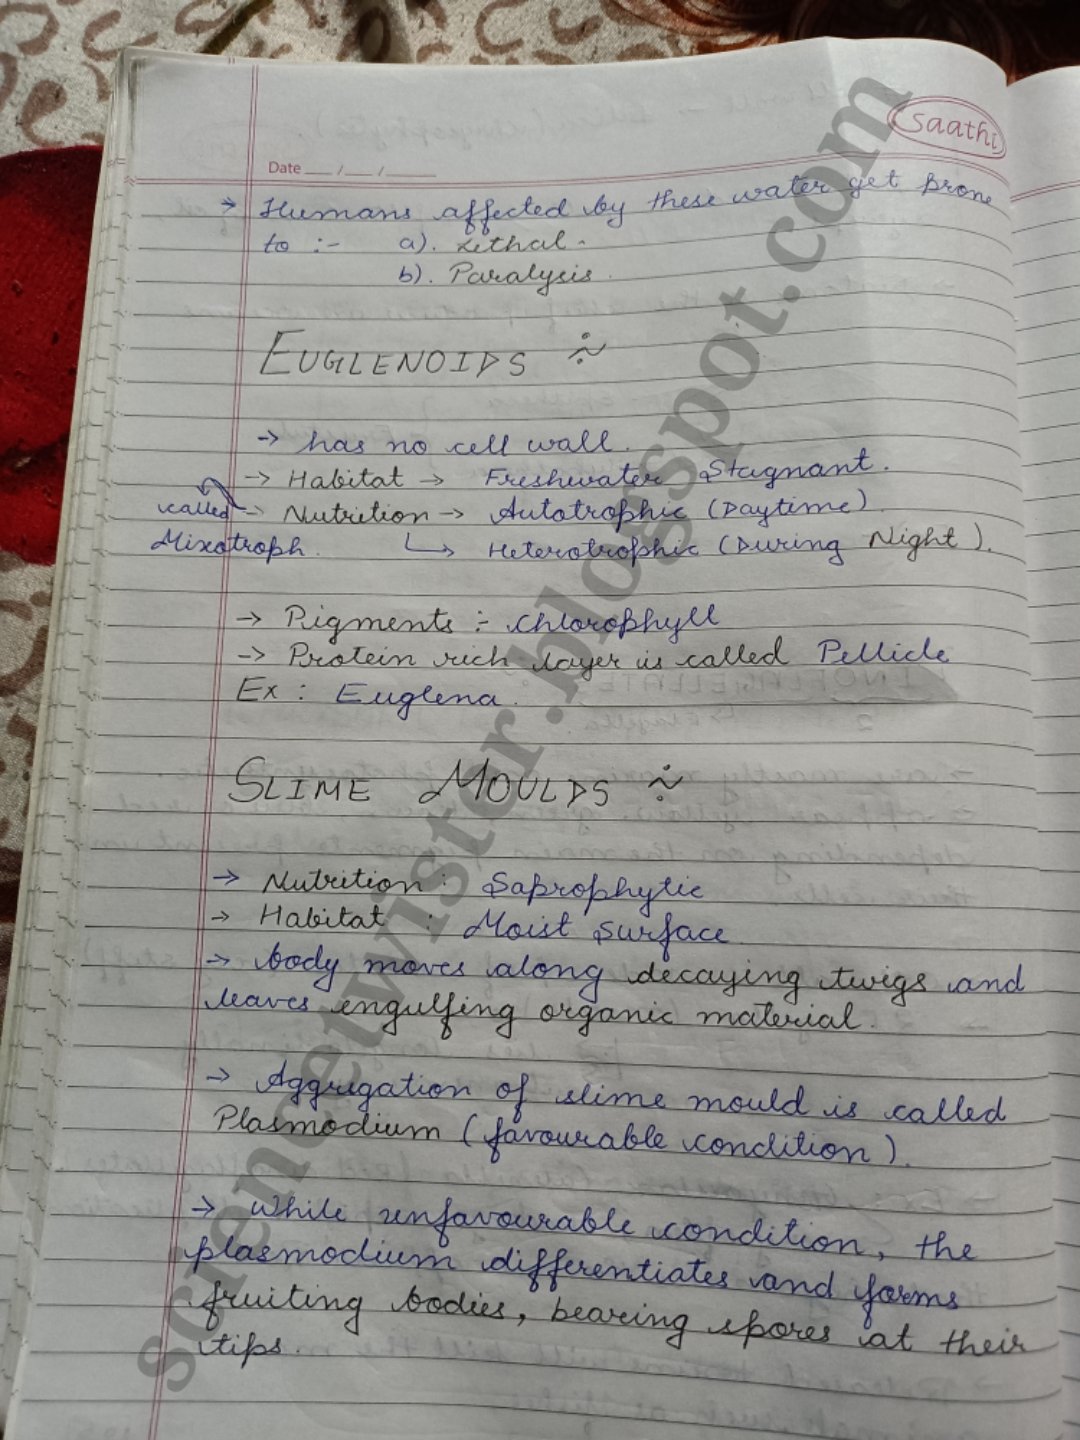 saathi
Date ___ / ___ / _____
→ Humans affected by these water get prone
to :- a). Lethal.
b). Paralysis.
EUGLENOIDS ÷
→ has no cell wall.
→ Habitat → Freshwater Stagnant.
called → Nutrition → Autotrophic (Daytime).
Mixotroph. ↳ Heterotrophic (During Night).
→ Pigments :- Chlorophyll
→ Protein rich layer is called Pellicle
Ex : Euglena.
SLIME MOULDS ÷
→ Nutrition : Saprophytic
→ Habitat : Moist Surface
→ body moves along decaying twigs and
leaves engulfing organic material.
→ Aggregation of slime mould is called
Plasmodium (favourable condition).
→ While unfavourable condition, the
plasmodium differentiates and forms
fruiting bodies, bearing spores at their
tips.
sciencetwister.blogspot.com